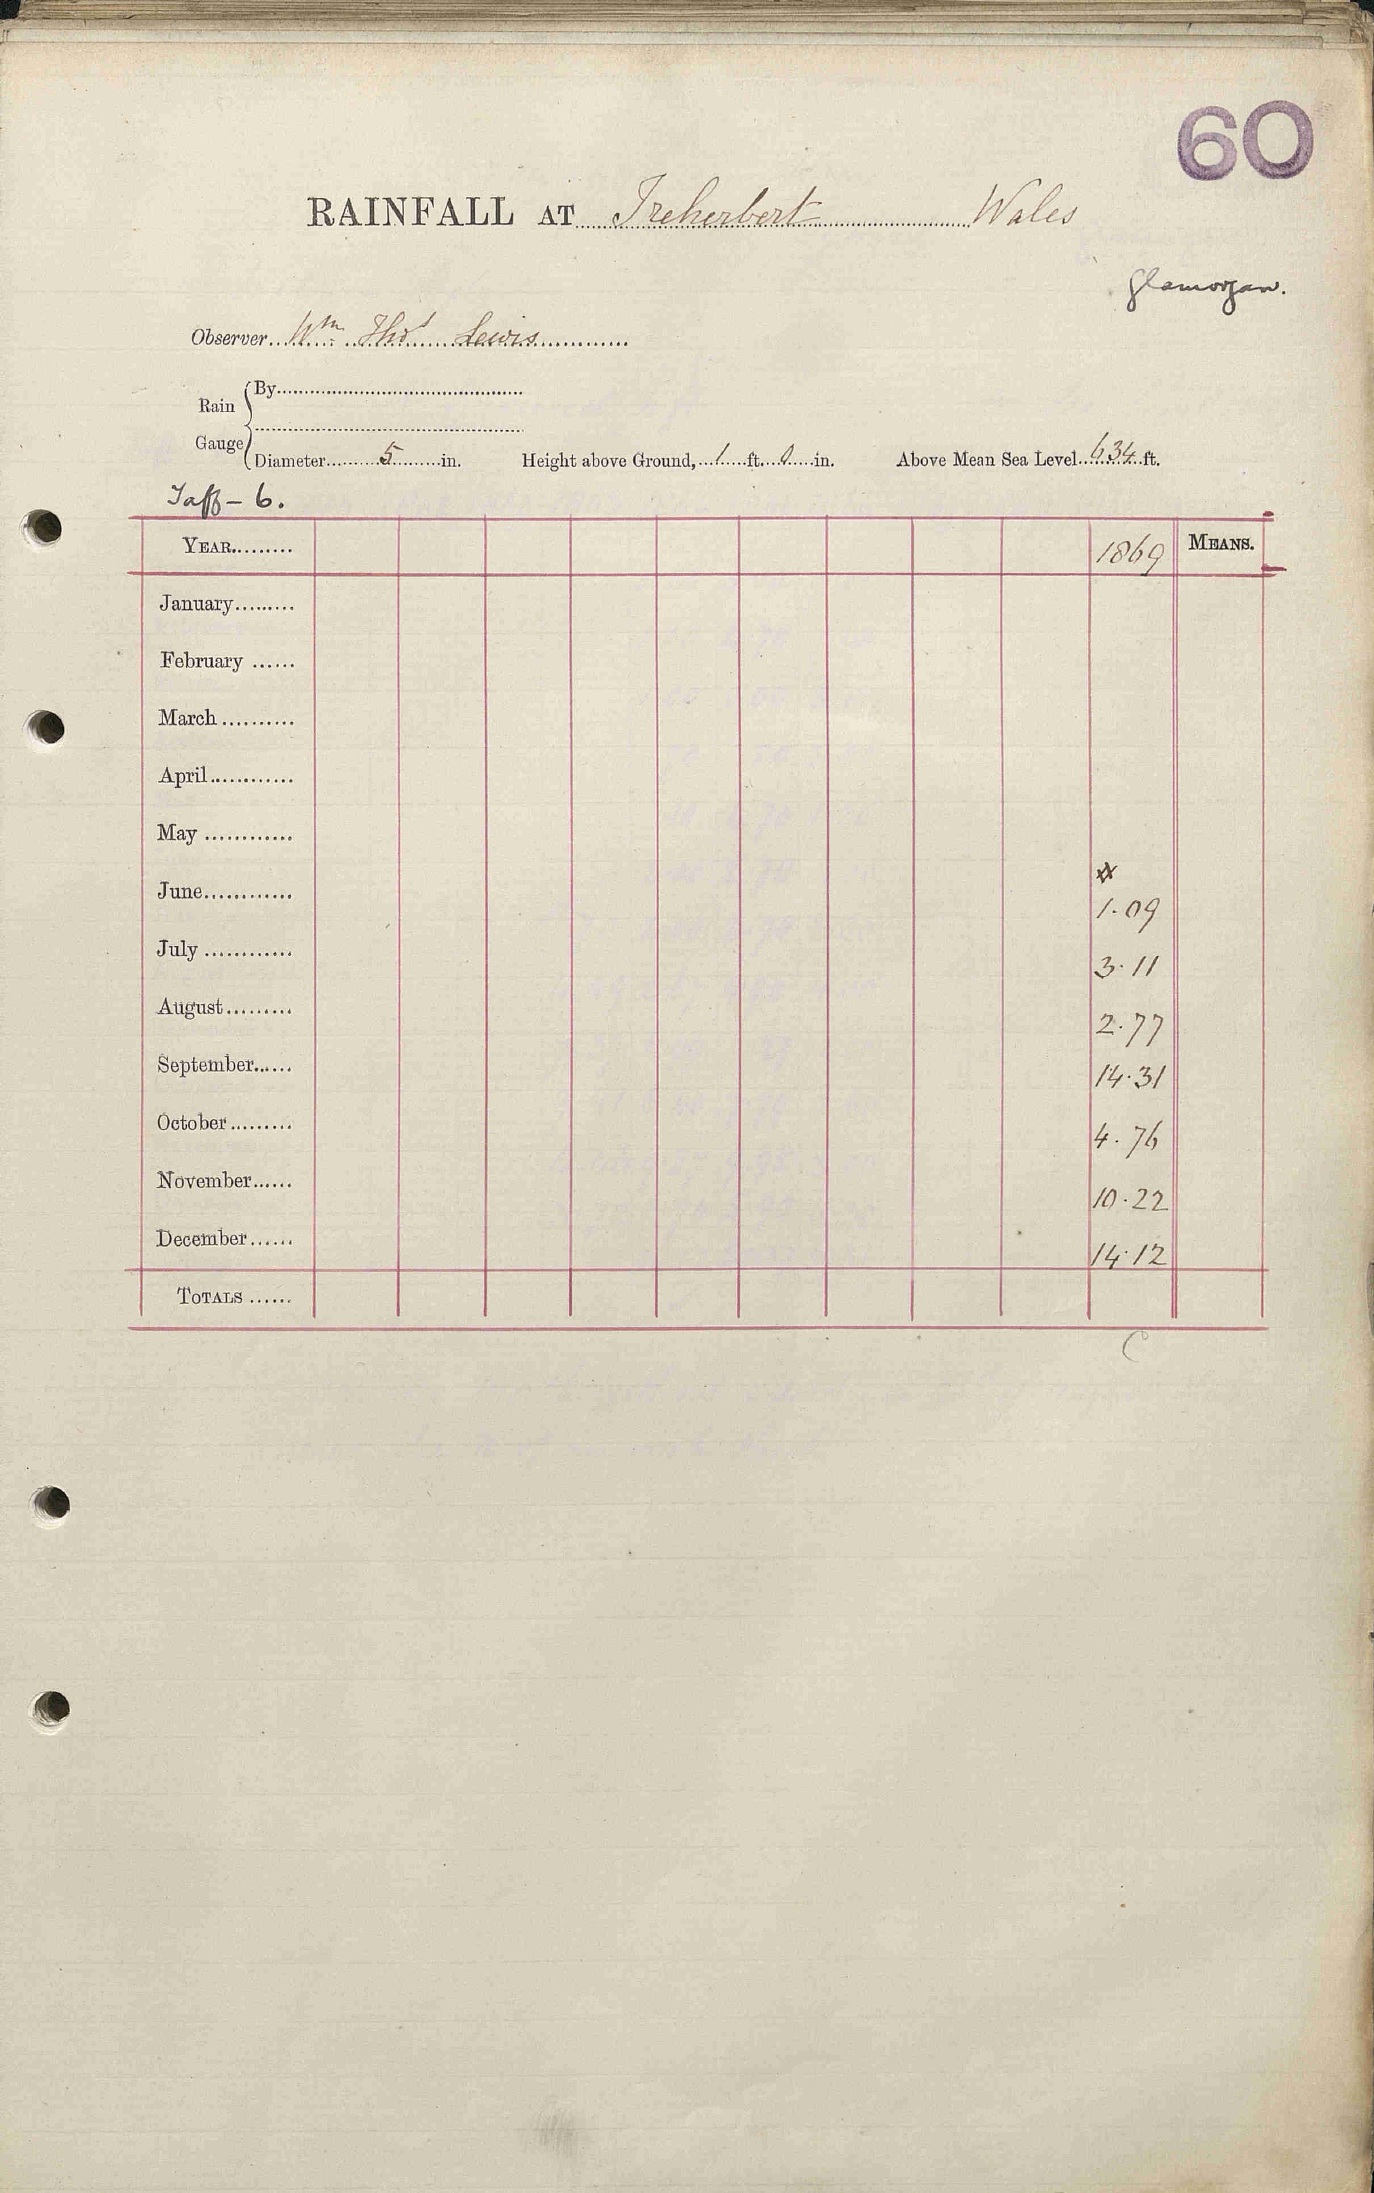 60
RAINFALL AT Treherbert Wales
Glamorgan.
Observer Wm Thos Lewis
Rain Gauge
By
Diameter 5 in. Height above Ground, 1 ft. 0 in. Above Mean Sea Level 634 ft.
Taff - 6.
YEAR 1869 MEANS.
January
February
March
April
May
June 1.09
July 3.11
August 2.77
September 14.31
October 4.76
November 10.22
December 14.12
TOTALS
C